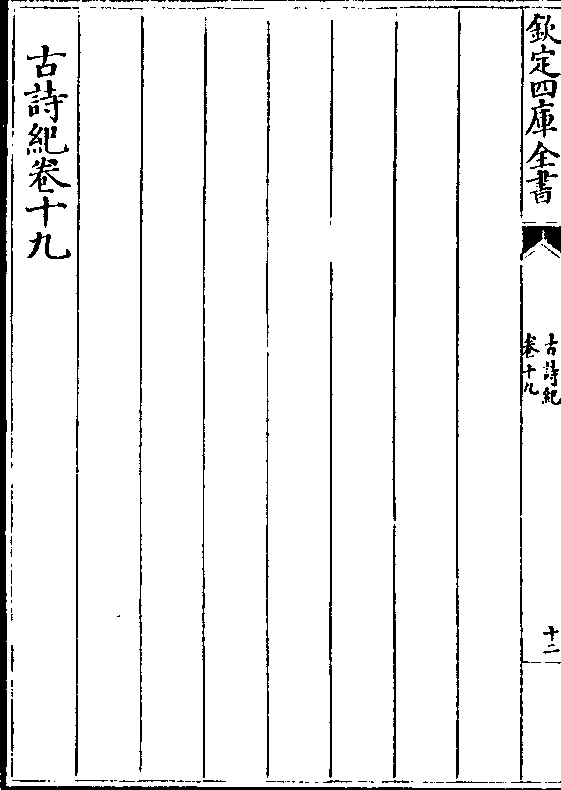 欽定四庫全書
古詩紀
卷十九
十二
古詩紀卷十九